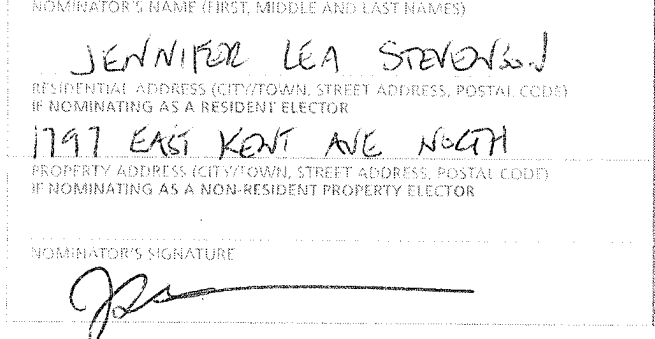 NOMINATOR'S NAME (FIRST, MIDDLE AND LAST NAMES)
JENNIFER LEA STEVENSON
RESIDENTIAL ADDRESS (CITY/TOWN, STREET ADDRESS, POSTAL CODE)
IF NOMINATING AS A RESIDENT ELECTOR
1797 EAST KENT AVE NORTH
PROPERTY ADDRESS (CITY/TOWN, STREET ADDRESS, POSTAL CODE)
IF NOMINATING AS A NON-RESIDENT PROPERTY ELECTOR
NOMINATOR'S SIGNATURE